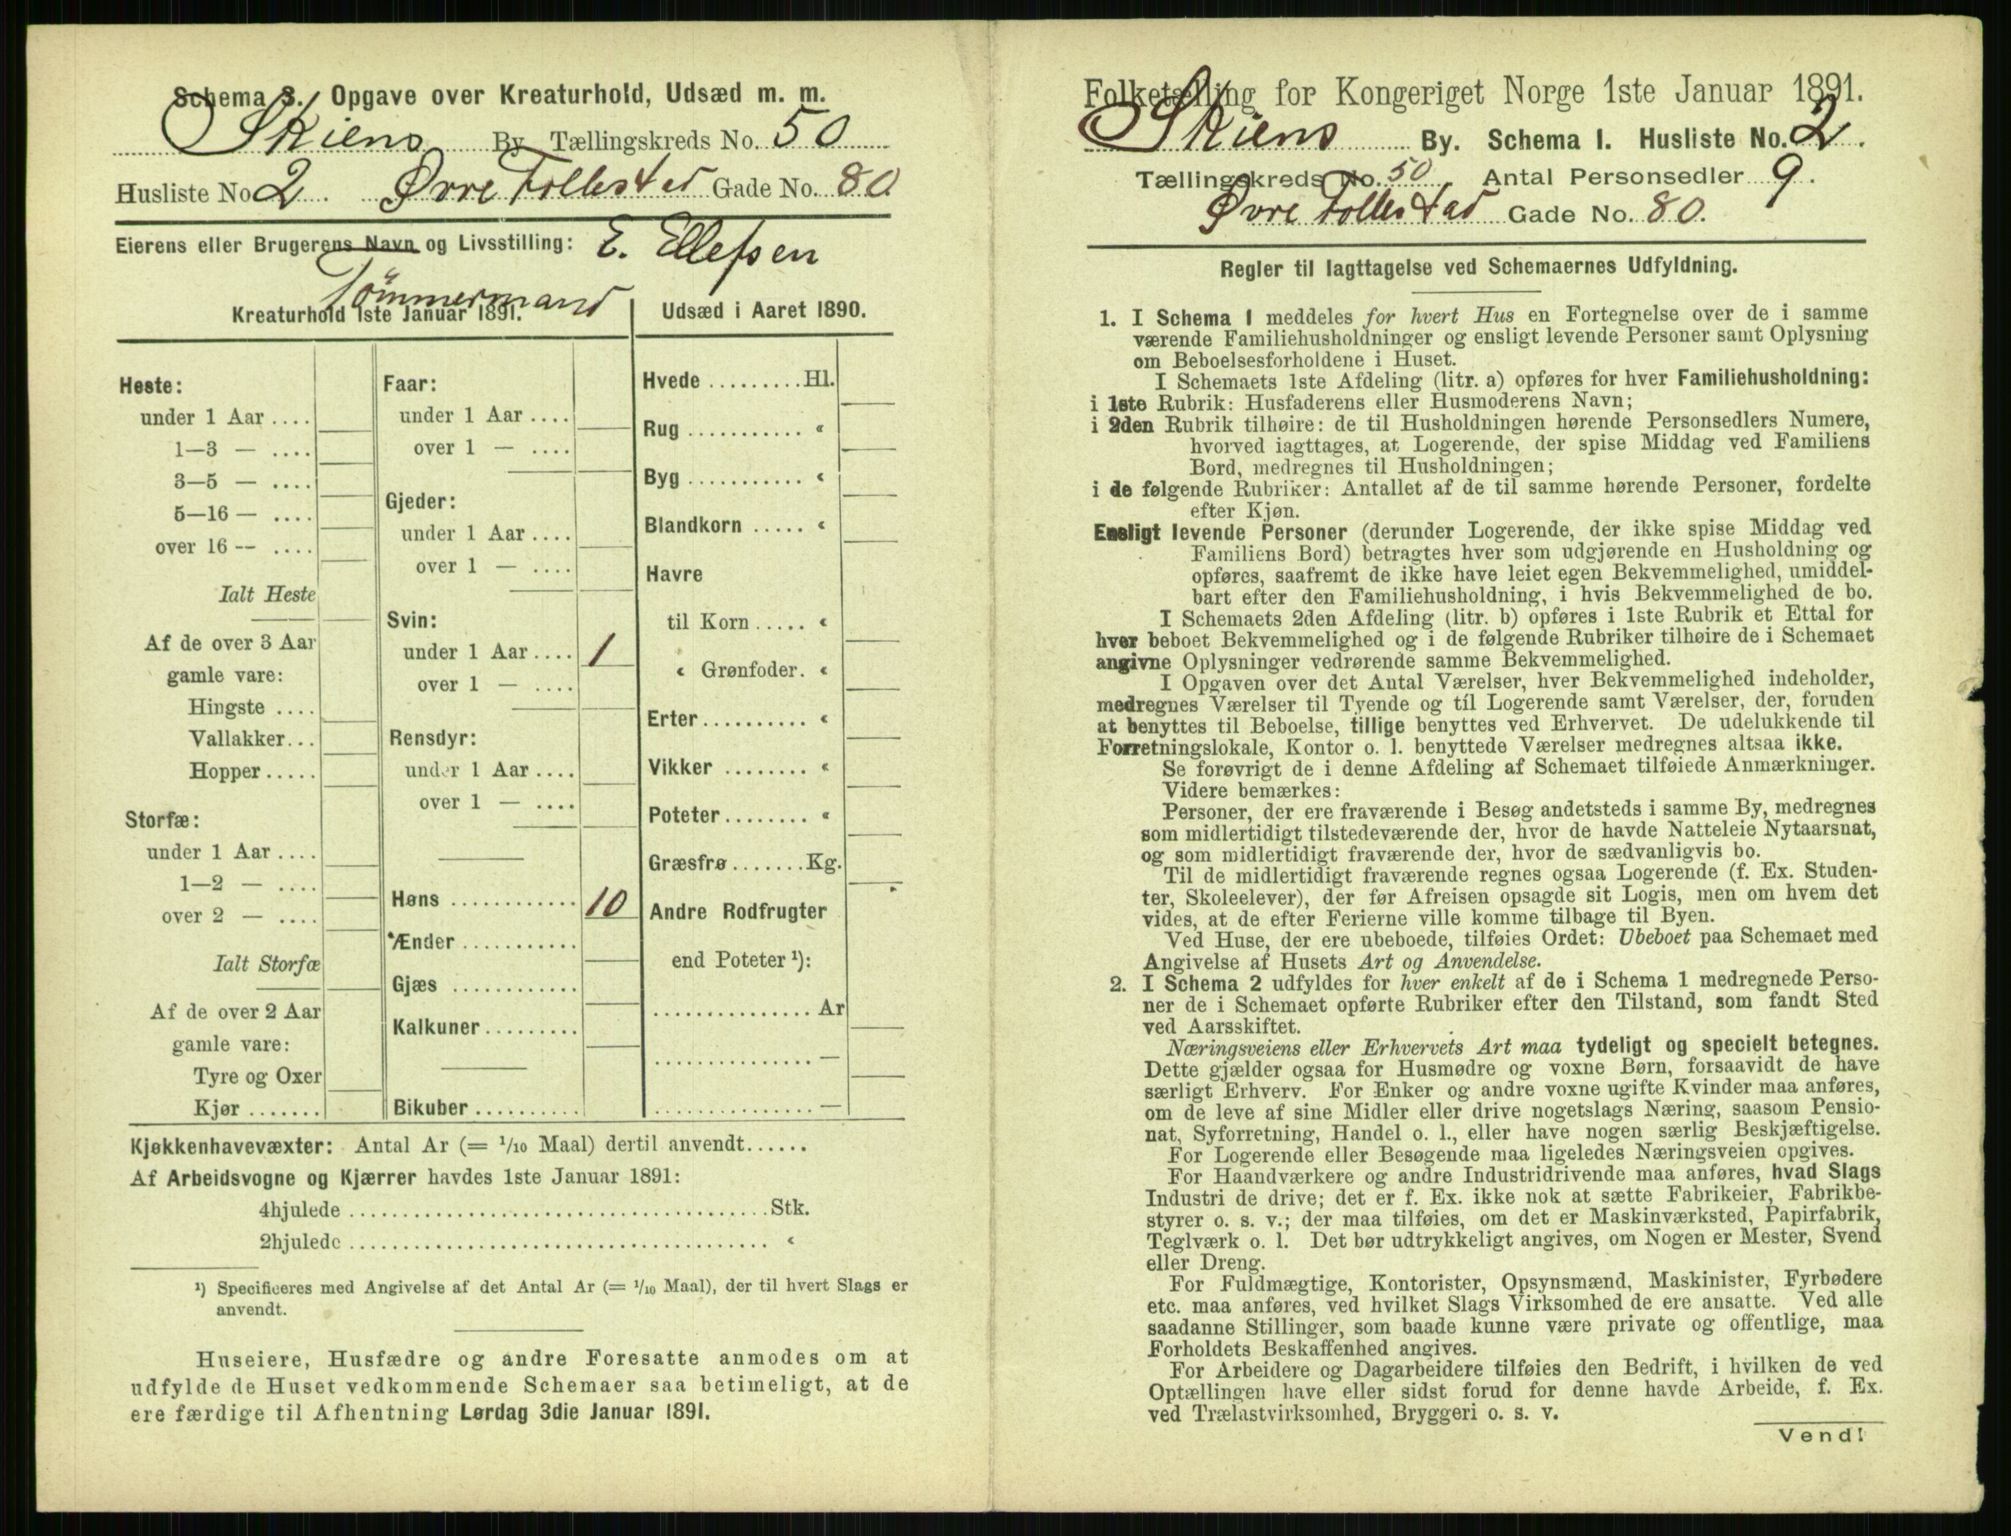 Schema 3. Opgave over Kreaturhold, Udsæd m. m.
Skiens By Tællingskreds No. 50
Husliste No 2 Øvre Follestad Gade No. 80
Eierens eller Brugerens Navn og Livsstilling: E. Ellefsen
Tømmermand
Kreaturhold 1ste Januar 1891.
Heste:
under 1 Aar ....
1—3 — ....
3—5 — ....
5—16 — ....
over 16 -- ....
Ialt Heste
Af de over 3 Aar
gamle vare:
Hingste ....
Vallakker...
Hopper.....
Storfæ:
under 1 Aar ....
1—2 — ....
over 2 — ....
Ialt Storfæ
Af de over 2 Aar
gamle vare:
Tyre og Oxer
Kjør .......
Faar:
under 1 Aar ....
over 1 — ....
Gjeder:
under 1 Aar ....
over 1 — ....
Svin:
under 1 Aar .... 1
over 1 — ....
Rensdyr:
under 1 Aar ....
over 1 — ....
Høns ............ 10
Ænder ...........
Gjæs ............
Kalkuner.........
Bikuber ..........
Udsæd i Aaret 1890.
Hvede .........Hl.
Rug ........... «
Byg ........... «
Blandkorn ..... «
Havre
til Korn ..... «
« Grønfoder. «
Erter.......... «
Vikker ........ «
Poteter........ «
Græsfrø.......Kg.
Andre Rodfrugter
end Poteter ¹):
............... Ar
............... —
............... —
Kjøkkenhavevæxter: Antal Ar (= 1/10 Maal) dertil anvendt......
Af Arbeidsvogne og Kjærrer havdes 1ste Januar 1891:
4hjulede ......................................Stk.
2hjulede ...................................... «
¹) Specificeres med Angivelse af det Antal Ar (= 1/10 Maal), der til hvert Slags er
anvendt.
Huseiere, Husfædre og andre Foresatte anmodes om at
udfylde de Huset vedkommende Schemaer saa betimeligt, at de
ere færdige til Afhentning Lørdag 3die Januar 1891.
Folketælling for Kongeriget Norge 1ste Januar 1891.
Skiens By. Schema I. Husliste No. 2.
Tællingskreds No. 50 Antal Personsedler 9.
Øvre Follestad Gade No. 80.
Regler til Iagttagelse ved Schemaernes Udfyldning.
1. I Schema 1 meddeles for hvert Hus en Fortegnelse over de i samme
værende Familiehusholdninger og ensligt levende Personer samt Oplysning
om Beboelsesforholdene i Huset.
I Schemaets 1ste Afdeling (litr. a) opføres for hver Familiehusholdning:
i 1ste Rubrik: Husfaderens eller Husmoderens Navn;
i 2den Rubrik tilhøire: de til Husholdningen hørende Personsedlers Numere,
hvorved iagttages, at Logerende, der spise Middag ved Familiens
Bord, medregnes til Husholdningen;
i de følgende Rubriker: Antallet af de til samme hørende Personer, fordelte
efter Kjøn.
Ensligt levende Personer (derunder Logerende, der ikke spise Middag ved
Familiens Bord) betragtes hver som udgjørende en Husholdning og
opføres, saafremt de ikke have leiet egen Bekvemmelighed, umiddel-
bart efter den Familiehusholdning, i hvis Bekvemmelighed de bo.
I Schemaets 2den Afdeling (litr. b) opføres i 1ste Rubrik et Ettal for
hver beboet Bekvemmelighed og i de følgende Rubriker tilhøire de i Schemaet
angivne Oplysninger vedrørende samme Bekvemmelighed.
I Opgaven over det Antal Værelser, hver Bekvemmelighed indeholder,
medregnes Værelser til Tyende og til Logerende samt Værelser, der, foruden
at benyttes til Beboelse, tillige benyttes ved Erhvervet. De udelukkende til
Forretningslokale, Kontor o. l. benyttede Værelser medregnes altsaa ikke.
Se forøvrigt de i denne Afdeling af Schemaet tilføiede Anmærkninger.
Videre bemærkes:
Personer, der ere fraværende i Besøg andetsteds i samme By, medregnes
som midlertidigt tilstedeværende der, hvor de havde Natteleie Nytaarsnat,
og som midlertidigt fraværende der, hvor de sædvanligvis bo.
Til de midlertidigt fraværende regnes ogsaa Logerende (f. Ex. Studen-
ter, Skoleelever), der før Afreisen opsagde sit Logis, men om hvem det
vides, at de efter Ferierne ville komme tilbage til Byen.
Ved Huse, der ere ubeboede, tilføies Ordet: Ubeboet paa Schemaet med
Angivelse af Husets Art og Anvendelse.
2. I Schema 2 udfyldes for hver enkelt af de i Schema 1 medregnede Perso-
ner de i Schemaet opførte Rubriker efter den Tilstand, som fandt Sted
ved Aarsskiftet.
Næringsveiens eller Erhvervets Art maa tydeligt og specielt betegnes.
Dette gjælder ogsaa for Husmødre og voxne Børn, forsaavidt de have
særligt Erhverv. For Enker og andre voxne ugifte Kvinder maa anføres,
om de leve af sine Midler eller drive nogetslags Næring, saasom Pensio-
nat, Syforretning, Handel o. l., eller have nogen særlig Beskjæftigelse.
For Logerende eller Besøgende maa ligeledes Næringsveien opgives.
For Haandværkere og andre Industridrivende maa anføres, hvad Slags
Industri de drive; det er f. Ex. ikke nok at sætte Fabrikeier, Fabrikbe-
styrer o. s. v.; der maa tilføies, om det er Maskinværksted, Papirfabrik,
Teglværk o. l. Det bør udtrykkeligt angives, om Nogen er Mester, Svend
eller Dreng.
For Fuldmægtige, Kontorister, Opsynsmænd, Maskinister, Fyrbødere
etc. maa anføres, ved hvilket Slags Virksomhed de ere ansatte. Ved alle
saadanne Stillinger, som baade kunne være private og offentlige, maa
Forholdets Beskaffenhed angives.
For Arbeidere og Dagarbeidere tilføies den Bedrift, i hvilken de ved
Optællingen have eller sidst forud for denne havde Arbeide, f. Ex.
ved Trælastvirksomhed, Bryggeri o. s. v.
Vend!